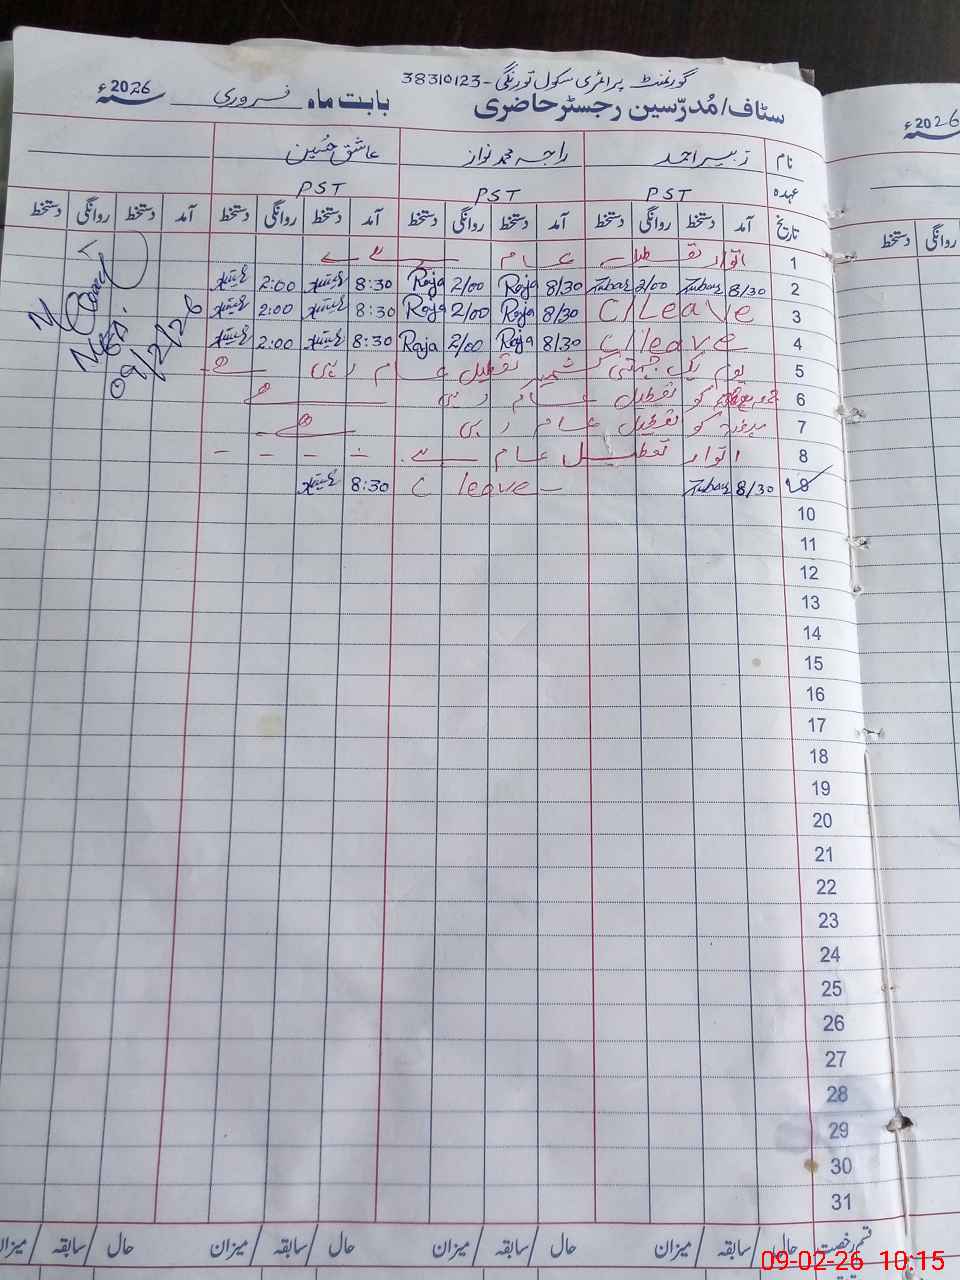 گورنمنٹ پرائمری سکول تورنگی - 38310123
سٹاف/مُدرّسین رجسٹر حاضری بابت ماہ فروری سنہ 2026ء
نام زبیر احمد راجہ محمد نواز عاشق حسین
عہدہ PST PST PST
تاریخ آمد دستخط روانگی دستخط آمد دستخط روانگی دستخط آمد دستخط روانگی دستخط آمد دستخط روانگی دستخط
1 اتوار تعطیل عام ہے
2 8/30 2/00 8/30 Raja 2/00 Raja 8:30 2:00
3 C/Leave 8/30 Raja 2/00 Raja 8:30 2:00
4 C/leave 8/30 Raja 2/00 Raja 8:30 2:00
5 یوم یک جہتی کشمیر تعطیل عام رہی
6 کو تعطیل عام رہی
7 کو تعطیل عام رہی
8 اتوار تعطیل عام ہے - - - - -
8/30 C leave - 8:30
10
11
12
13
14
15
16
17
18
19
20
21
22
23
24
25
26
27
28
29
30
31
قسم رخصت حال / سابقہ / میزان حال / سابقہ / میزان حال / سابقہ / میزان حال / سابقہ / میزان
09/2/26
سنہ 2026ء
روانگی دستخط
09-02-26 10:15